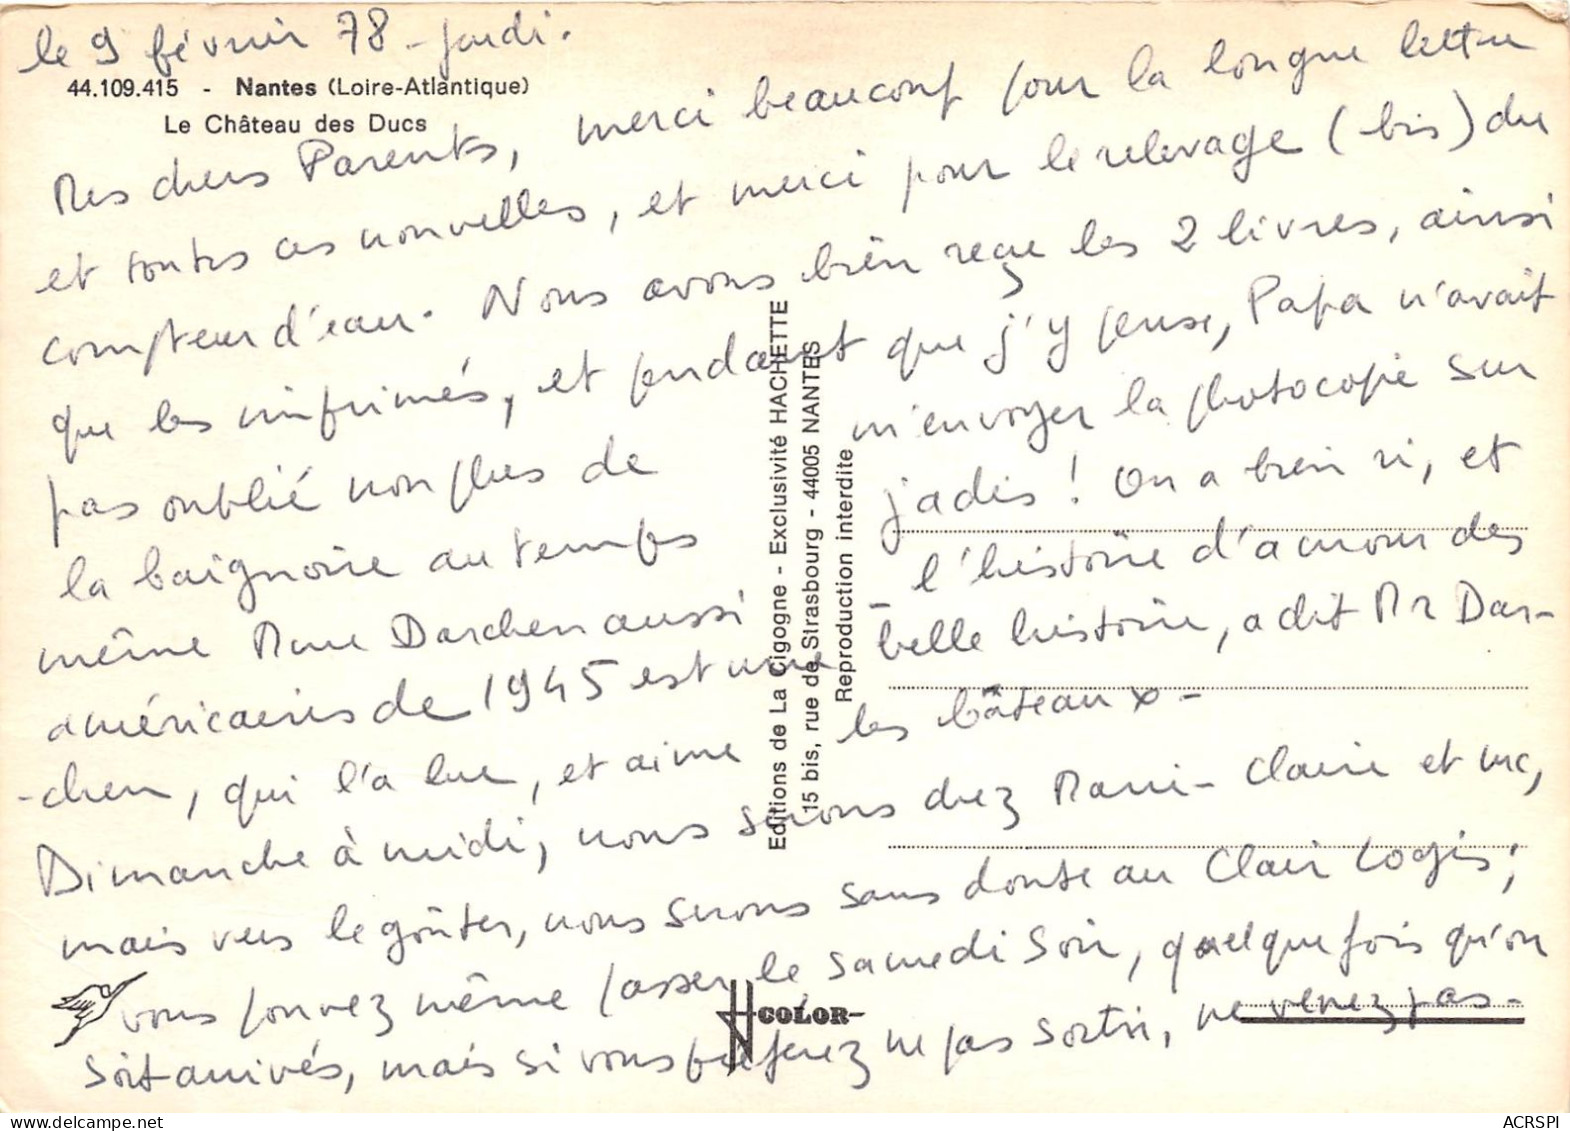 le 9 février 78 - jeudi.
44.109.415 - Nantes (Loire-Atlantique)
Le Château des Ducs
Mes chers Parents, merci beaucoup pour la longue lettre
et toutes ces nouvelles, et merci pour le relevage (bis) du
compteur d'eau. Nous avons bien reçu les 2 livres, ainsi
que les imprimés, et pendant que j'y pense, Papa n'avait
pas oublié non plus de m'envoyer la photocopie sur
la baignoire au temps jadis ! On a bien ri, et
même Mme Darchen aussi - l'histoire d'amour des
américains de 1945 est une belle histoire, a dit Mr Dar-
-chen, qui l'a lue, et aime les bâteaux -
Dimanche à midi, nous serons chez Marie-Claire et Mc,
mais vers le goûter, nous serons sans doute au Clair Logis ;
vous pouvez même passer le samedi soir, quelquefois qu'on
soit arrivés, mais si vous préférez ne pas sortir, ne venez pas -
Editions de La Cigogne - Exclusivité HACHETTE
15 bis, rue de Strasbourg - 44005 NANTES
Reproduction interdite
COLOR
ACRSPI